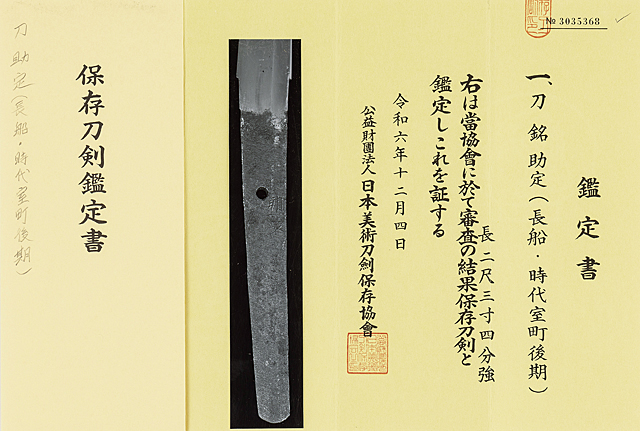 № 3035368
鑑定書
一、刀 銘 助定(長船・時代室町後期)
長 二尺三寸四分強
右は當協會に於て審査の結果保存刀剣と
鑑定しこれを証する
令和六年十二月四日
公益財團法人 日本美術刀劍保存協會
保存刀剣鑑定書
刀 助定(長船・時代室町後期)